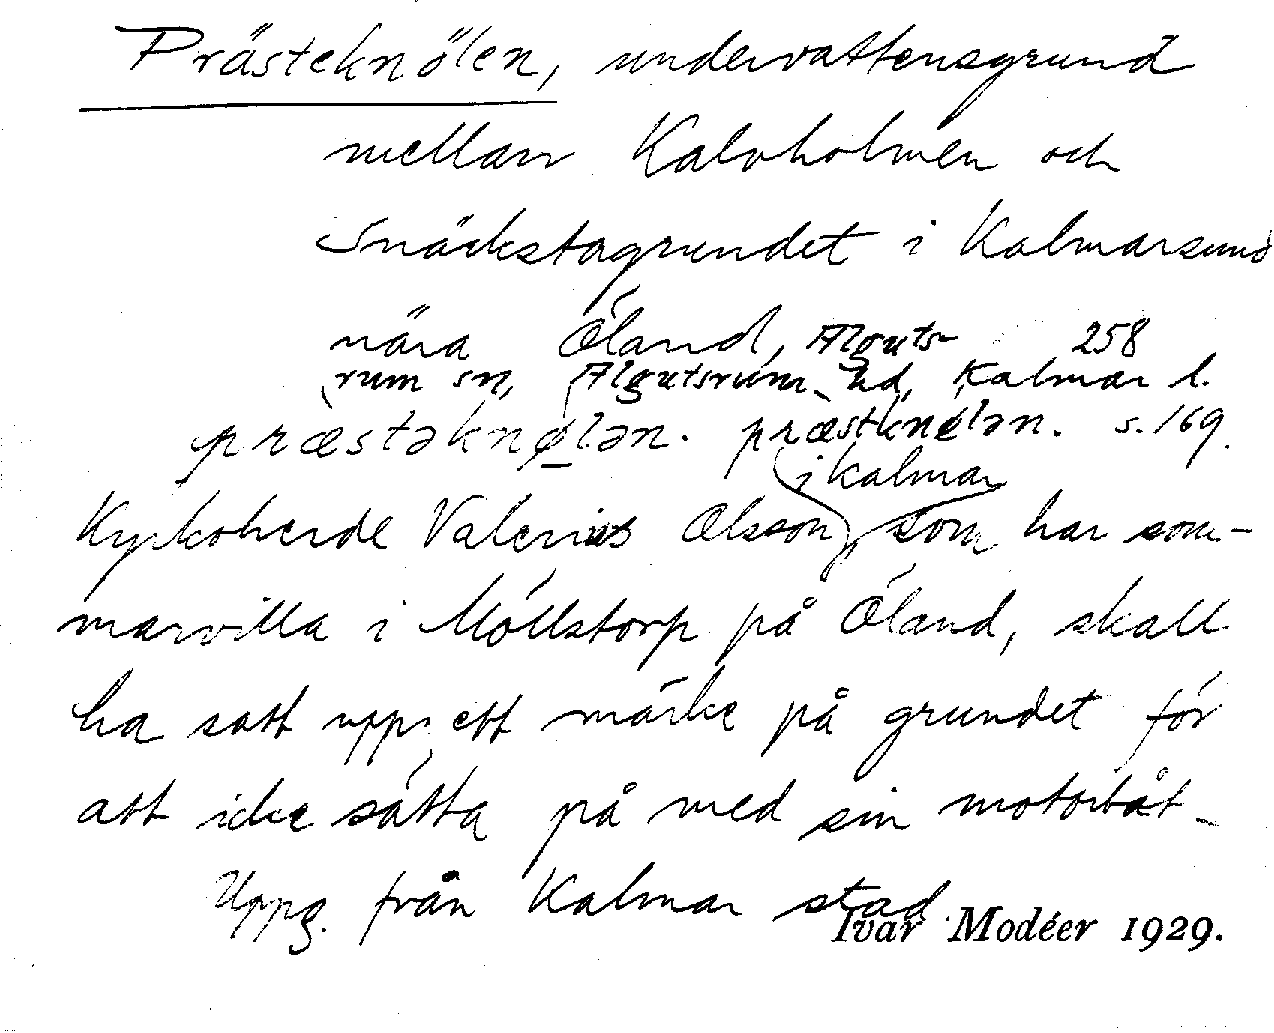 Prästeknölen, undervattensgrund
mellan Kalvholmen och
Snäckstagrundet i Kalmarsund
nära Öland, Alguts- 258
rum sn, Algutsrum hd, Kalmar l.
præstəknølən. præstknølən. s. 169.
i Kalmar
Kyrkoherde Valerius Olsson, som har som-
marvilla i Möllstorp på Öland, skall
ha satt upp ett märke på grundet för
att icke sätta på med sin motorbåt –
Uppg. från Kalmar stad
Ivar Modéer 1929.